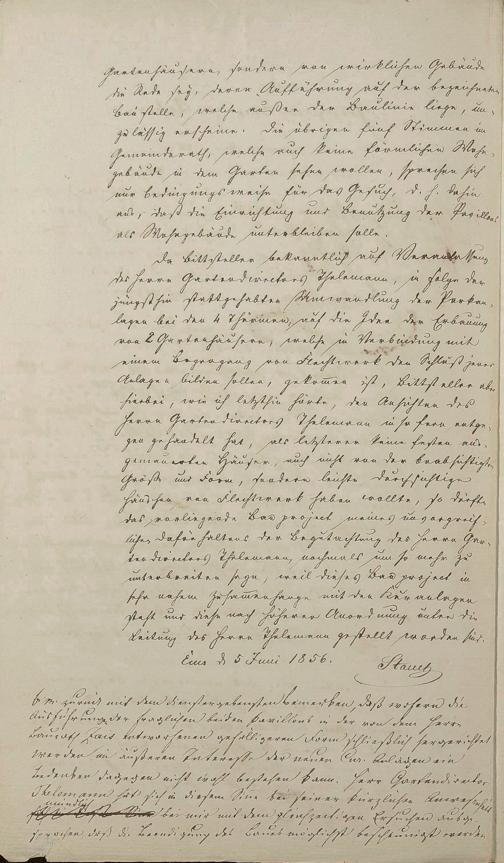 Gartenhäusern, sondern von wirklichen Gebäuden
die Rede sey, deren Aufführung auf der bezeichneten
Baustelle, welche außer der Baulinie liege, un-
zulässig erscheine. Die übrigen fünf Stimmen im
Gemeinderath, welche auch keine förmlichen Wohn-
gebäude in dem Garten sehen wollen, sprechen sich
nur bedingungsweise für das Gesuch, d. h. dahin
aus, daß die Einrichtung und Benutzung der Pavillons
als Wohngebäude unterbleiben solle.
Da Bittsteller bekanntlich auf Veranlassung
des Herrn Gartendirectors Thelemann, in Folge der
jüngsthin stattgehabten Umwandlung der Parkan-
lagen bei den 4 Thürmen, auf die Idee der Erbauung
von 2 Gartenhäusern, welche in Verbindung mit
einem Bogengang von Flechtwerk den Schluß jener
Anlagen bilden sollen, gekommen ist, Bittsteller aber
hierbei, wie ich letzthin hörte, den Ansichten des
Herrn Gartendirectors Thelemann in so fern entge-
gen gehandelt hat, als letzterer keine festen aus-
gemauerten Häuser, auch nicht von der beabsichtigten
Größe und Form, sondern leichte durchsichtige
Häuschen von Flechtwerk haben wollte, so dürfte
das vorliegende Bauproject meines unvorgreif-
lichen Dafürhaltens der Begutachtung des Herrn Gar-
tendirectors Thelemann, nochmals um so mehr zu
unterbreiten seyn, weil dieses Bauproject in
sehr nahem Zusammenhange mit den Kuranlagen
steht und diese nach höherer Anordnung unter die
Leitung des Herrn Thelemann gestellt worden sind.
Ems d 5 Juni 1856.
zurück mit dem dienstergebensten Bemerken, daß wofern die
Ausführung der fraglichen beiden Pavillons in der von dem Herrn
Baurath entworfenen gefälligeren Form schließlich hergerichtet
werden im äußeren Interesse der neuen Cur-Anlagen ein
Bedenken dagegen nicht wohl bestehen kann. Herr Gartendirector
Thelemann hat sich in diesem Sinne bei seiner kürzlichen Anwesenheit
mündlich bei mir mit dem gleichzeitigen Ersuchen ausge-
sprochen daß die Beendigung des Baues möglichst beschleunigt werde.